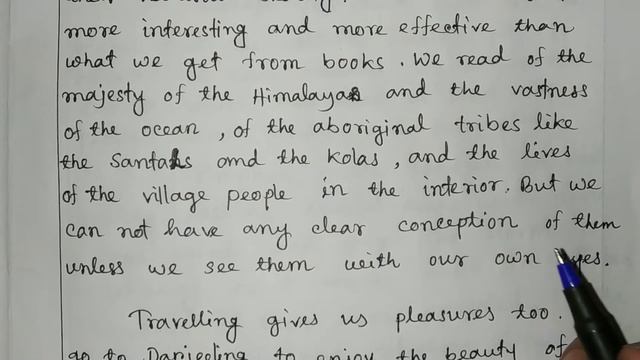 more interesting and more effective than
what we get from books. We read of the
majesty of the Himalayas and the vastness
of the ocean, of the aboriginal tribes like
the Santals and the Kolas, and the lives
of the village people in the interior. But we
can not have any clear conception of them
unless we see them with our own eyes.
Travelling gives us pleasures too.
go to Darjeeling to enjoy the beauty of